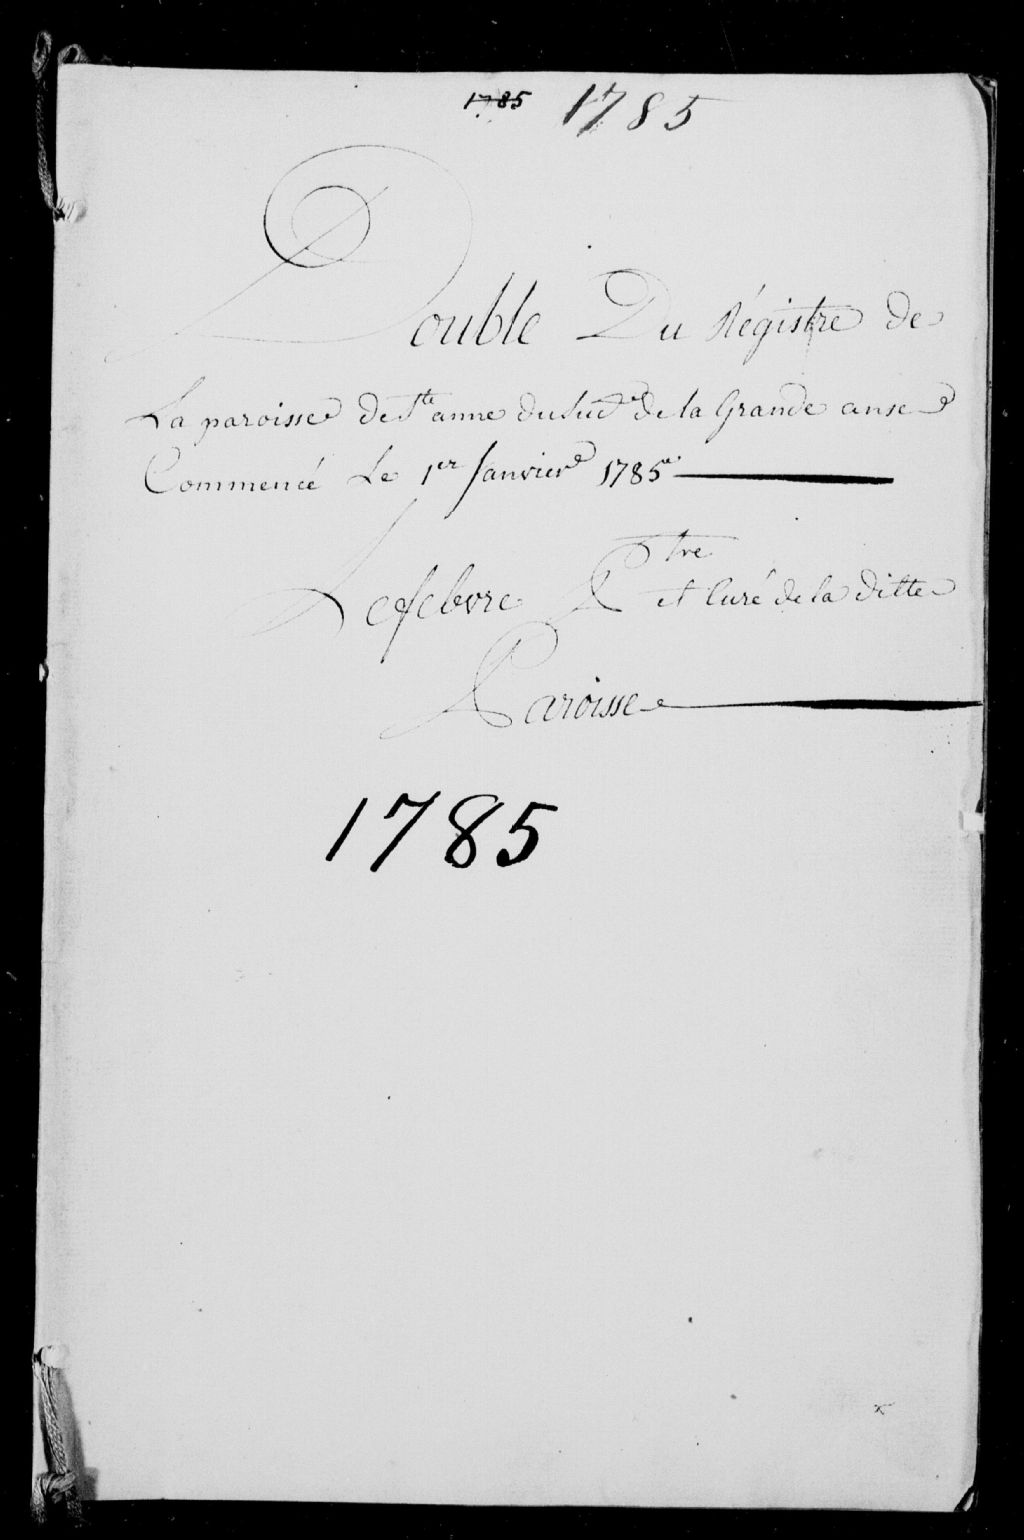 1785 1785
Double Du Régistre de
La paroisse de Ste anne du Sud de la Grande anse
Commencé Le 1er Janvier 1785
Lefebvre Ptre et Curé de la ditte
Paroisse
1785